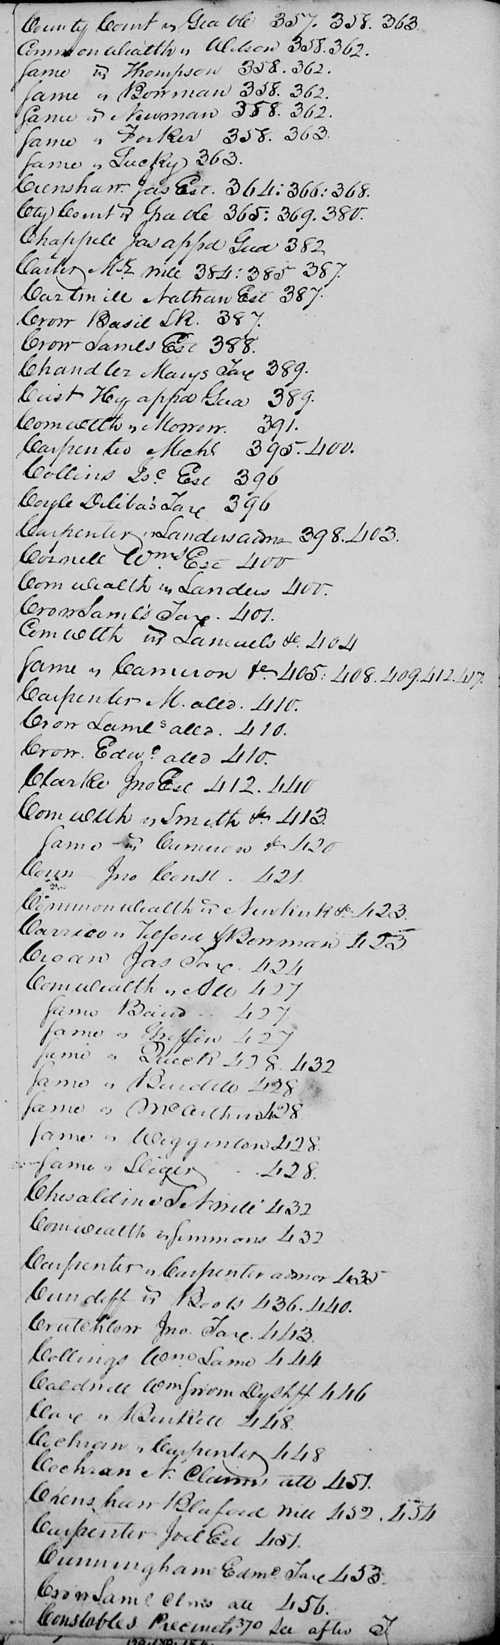 County Court vs Gra de 357. 358. 363
Commonwealth vs Wilson 358. 362.
same vs Thompson 358. 362.
same vs Bowman 358. 362.
same vs Newman 358. 362.
same vs Forker 358. 363
same vs Lucky 363.
Crenshaw Jas Exr. 364: 366: 368.
Cty Court vs Gra de 365: 369. 380.
Chappell Jas appd Gua 382
Carter mill 384: 385 387.
Cartmill Nathan Est 387.
Crow Basil SR. 387.
Crow James Est 388.
Chandler Marys Tax 389.
Cust Hy appd Gua 389.
Comwelth vs Morrow. 391.
Carpenter Michl 395. 400.
Collins Est 396
Coyle Tax 396
Carpenter vs Landers admr 398. 403.
Cornell Wms Est 400
Comwealth vs Landers 400.
Crow Saml's Tax. 401.
Comwlth vs Samuels &c. 404
same vs Cameron &c 405: 408. 409. 412. 417.
Carpenter M. alld. 410.
Crow Saml alld. 410.
Crow. Edwd alld 410.
Clarke Jno Est 412. 440
Comwelth vs Smith &c 413
same vs Cameron &c 420
Jno Const. 421.
Commonwealth vs &c. 423.
Carrico vs Telford & Bowman 423
Jas Tax. 424
Comwealth vs 427
same Baird 427
same vs Griffin 427
same vs 428. 432
same vs Burdett 428
same vs McArthur 428
same vs Wigginton 428.
same vs 428.
mill 432
Comwealth vs Simmons 432
Carpenter vs Carpenter admor 435
Cundiff vs Roots 436. 440.
Crutchlow Jno. Tax. 443.
Collings Wm Same 444
Caldwell Wm from Dy Shff 446
vs Burkell 448
Cochran vs Carpenter 448
Cochran N. Claims all 451.
Crenshaw Bluford mill 452. 454
Carpenter Joel Est 451.
Cunningham Edmd Tax 453.
Crow Saml Clms all 456.
Constables Precincts 370 See after